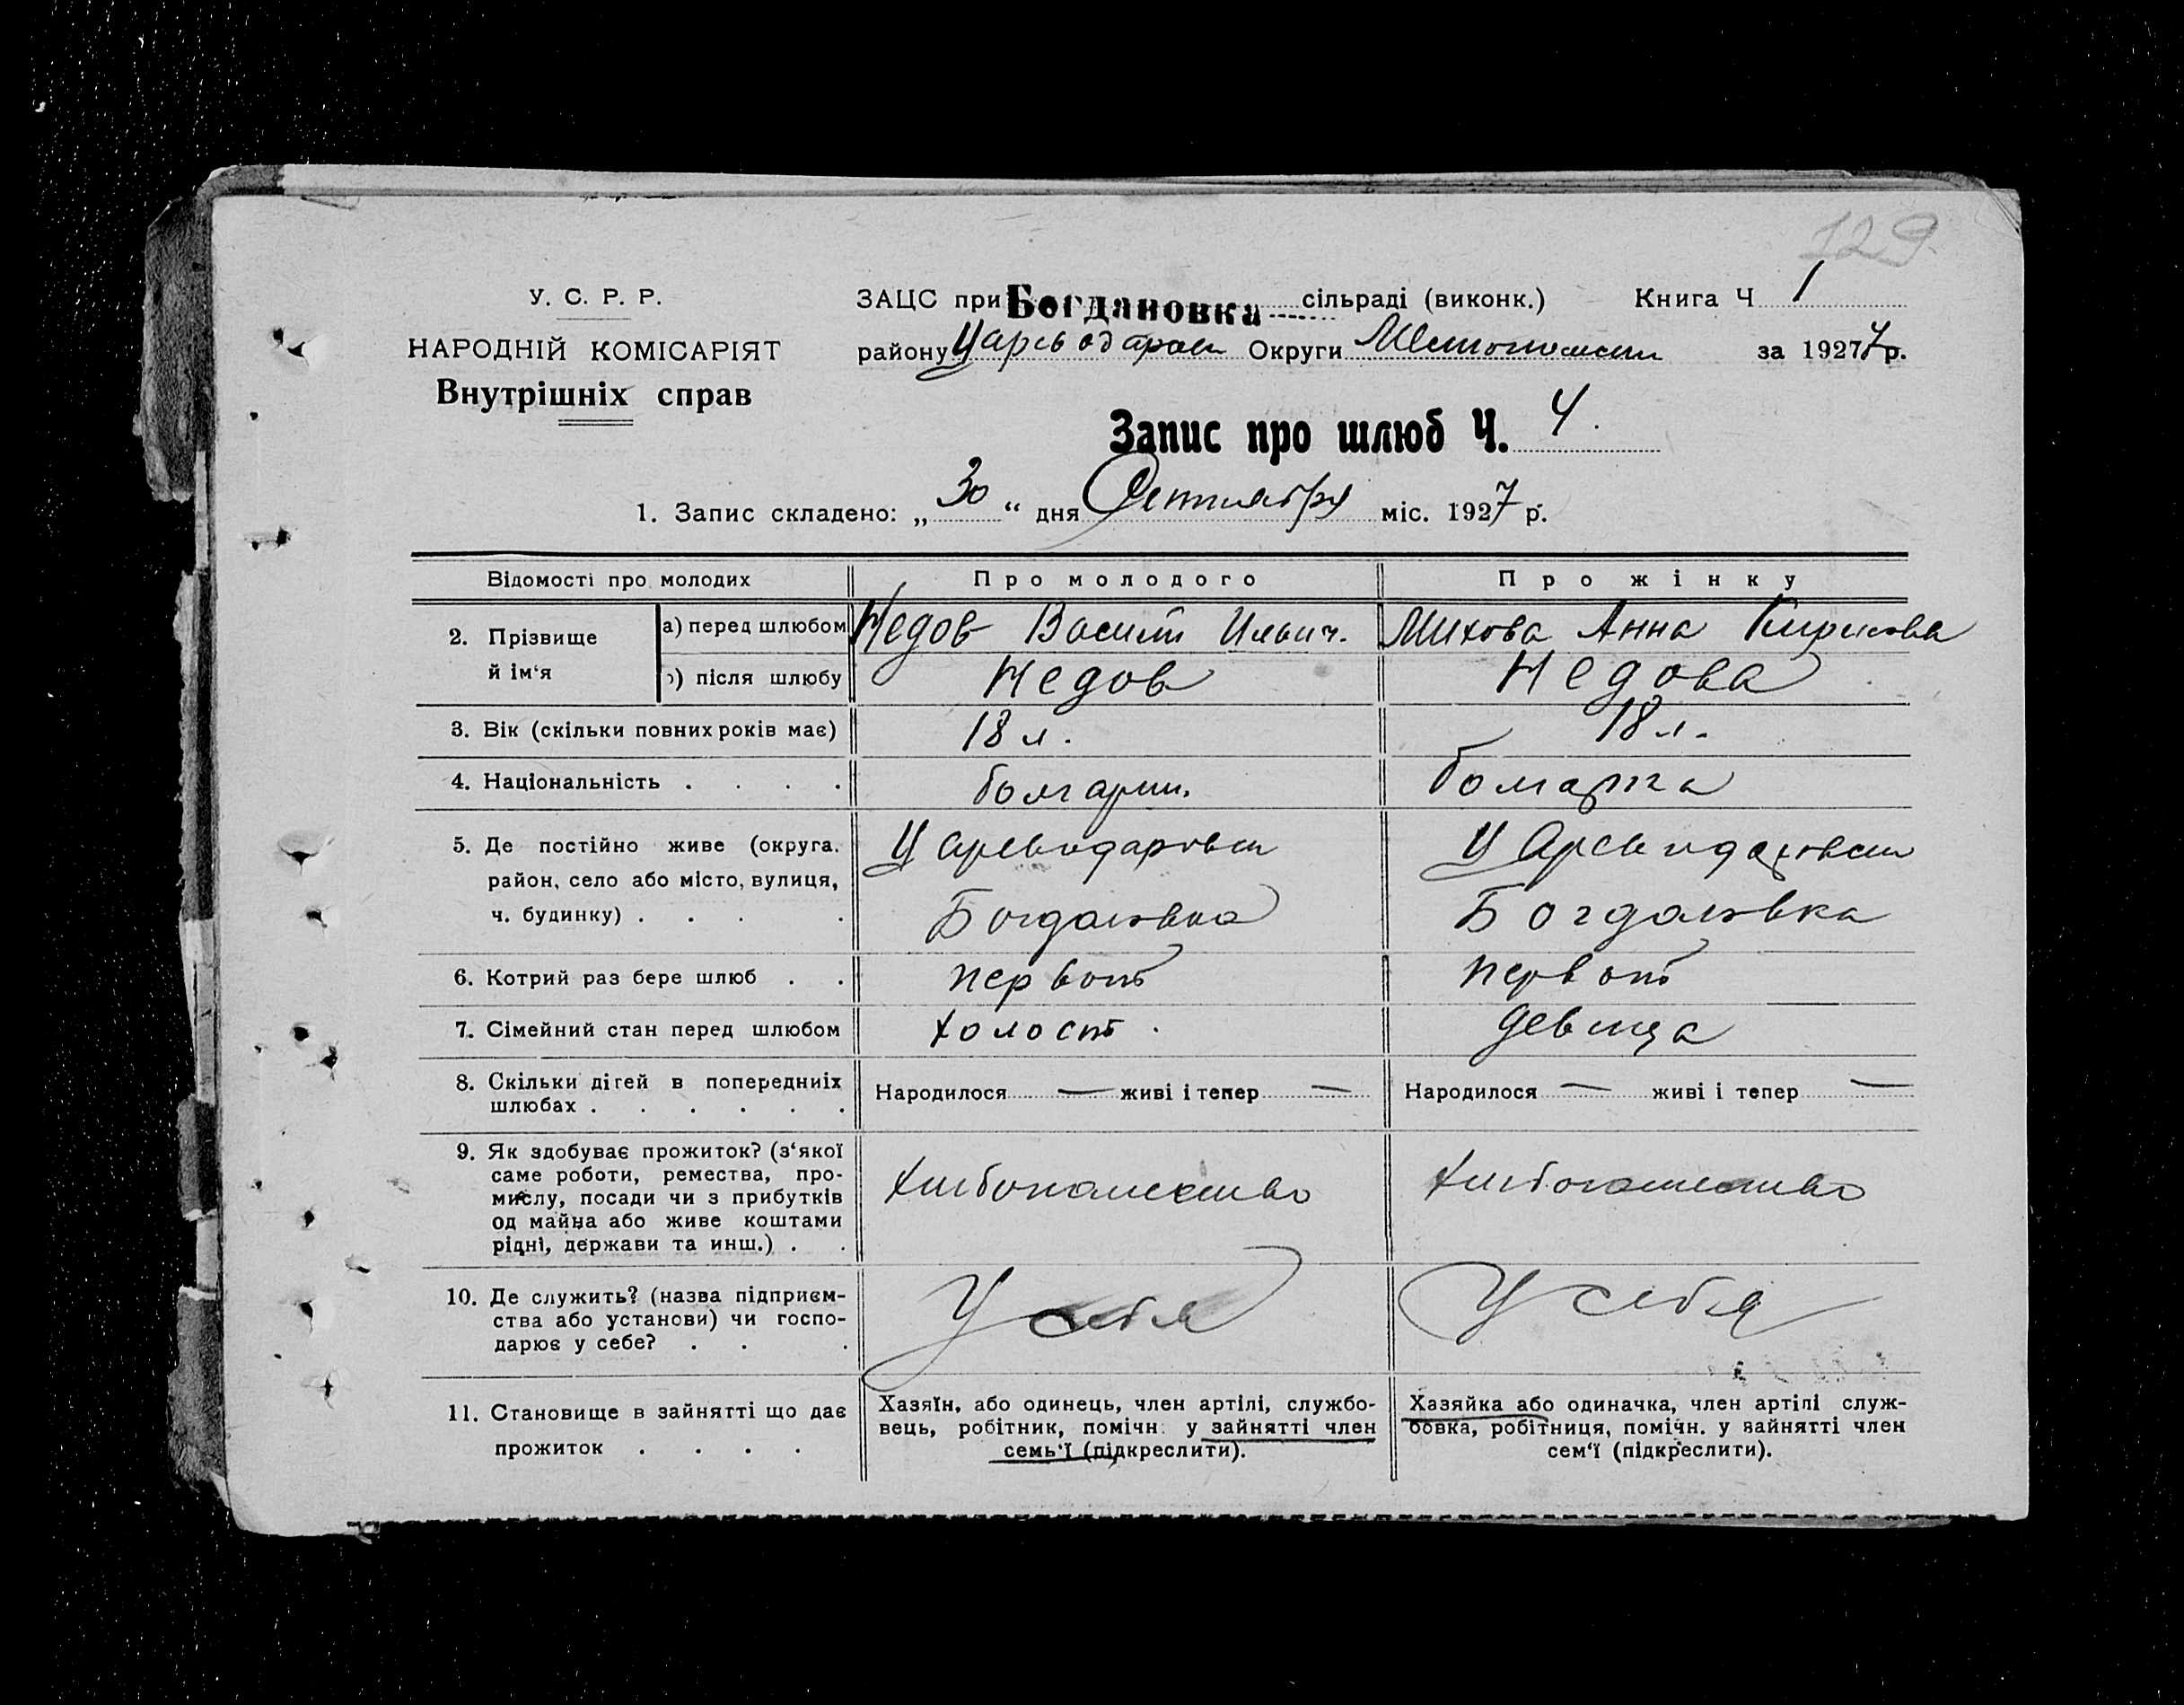 129
У. С. Р. Р.
НАРОДНІЙ КОМІСАРІЯТ
Внутрішніх справ
ЗАЦС при Богдановка сільраді (виконк.) Книга Ч 1
району Цареводаров Округи за 1927 7 р.
Запис про шлюб Ч. 4.
1. Запис складено: „ 30 “ дня Сентября міс. 1927 р.
Відомості про молодих Про молодого Про жінку
2. Прізвище й ім‘я
а) перед шлюбом Недов Василий Ильич. Михова Анна Кирилова
б) після шлюбу Недов Недова
3. Вік (скільки повних років має) 18 л. 18 л.
4. Національність . . . . болгарин. болгарка
5. Де постійно живе (округа. Цареводаровск Цареводаровск
район, село або місто, вулиця,
ч. будинку) . . . . Богдановка Богдановка
6. Котрий раз бере шлюб . . первый первый
7. Сімейний стан перед шлюбом холост. девица
8. Скільки дітей в попередниіх Народилося — живі і тепер — Народилося — живі і тепер —
шлюбах . . . . . .
9. Як здобуває прожиток? (з‘якої
саме роботи, ремества, про-
мислу, посади чи з прибутків хлебопашество хлебопашество
од майна або живе коштами
рідні, держави та инш.) . .
10. Де служить? (назва підприєм-
ства або установи) чи госпо- У себя У себя
дарює у себе? . . .
11. Становище в зайнятті що дає
прожиток . . . .
Хазяїн, або одинець, член артілі, службо-
вець, робітник, помічн. у зайнятті член
семь‘ї (підкреслити).
Хазяйка або одиначка, член артілі служ-
бовка, робітниця, помічн. у зайнятті член
сем‘ї (підкреслити).